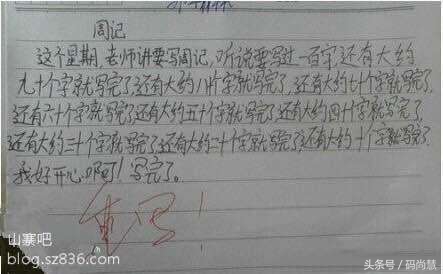 周记
这个星期,老师讲要写周记,听说要写过一百字还有大约
九十个字就写完了,还有大约八十字就写完了,还有大约七十个字就写完了,
还有六十个字就写完了还有大约五十个字就写完了,还有大约四十个字就写完了,
还有大约三十个字就写完了,还有大约二十个字就写完了还有大约十个字就写完了,
我好开心啊可!写完了。
重写!
山寨吧
blog.sz836.com
头条号/码尚慧